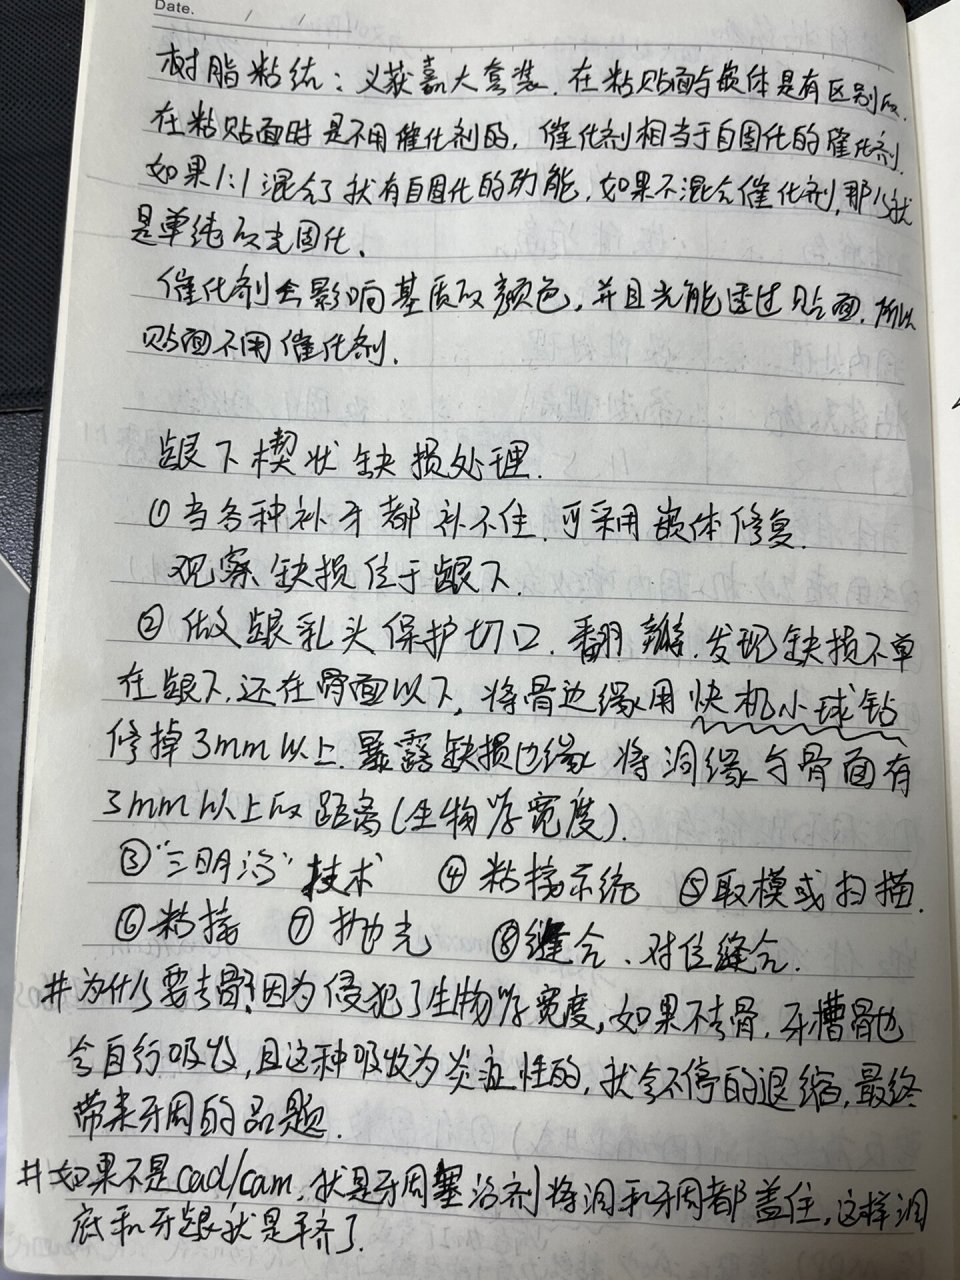 Date. / /
树脂粘结:义获嘉大套装.在粘贴面与嵌体是有区别的.
在粘贴面时是不用催化剂的,催化剂相当于自固化的催化剂.
如果1:1混合了状有自固化的功能,如果不混合催化剂,那么状
是单纯的光固化.
催化剂会影响基质的颜色,并且光能透过贴面.所以
贴面不用催化剂.
龈下楔状缺损处理.
①当各种补牙都补不住.可采用嵌体修复.
观察缺损位于龈下
②做龈乳头保护切口.翻瓣.发现缺损不单
在龈下,还在骨面以下,将骨边缘用快机小球钻
修掉3mm以上.暴露缺损边缘 将洞缘与骨面有
3mm以上的距离(生物学宽度).
③"三明治"技术 ④粘接系统 ⑤取模或扫描.
⑥粘接 ⑦抛光 ⑧缝合、对位缝合.
#为什么要去骨?因为侵犯了生物学宽度,如果不去骨.牙槽骨也
会自行吸收,且这种吸收为炎症性的,状会不停的退缩,最终
带来牙周的问题.
#如果不是cad/cam,状是牙周塞治剂将洞和牙周都盖住,这样洞
底和牙龈状是平齐了.